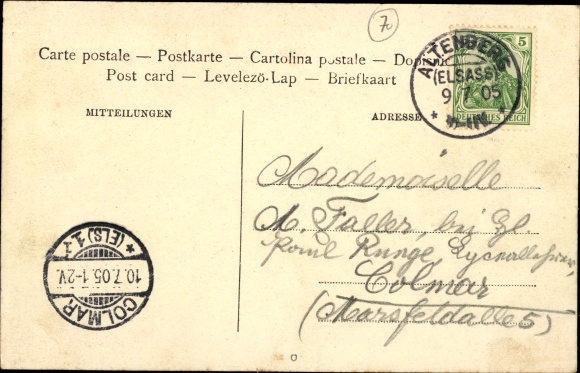 7c
Carte postale — Postkarte — Cartolina postale — Dopisnic
Post card — Levelező-Lap — Briefkaart
MITTEILUNGEN
ADRESSE
ALTENBERG
(ELSASS)
9 7 05
5
DEUTSCHES REICH
Mademoiselle
M. Faller, bei Hl.
Runge, Lyceallehrer,
Colmar
(Marsfeldallee 5)
* (ELS) 1.
10.7.05.1-2V.
COLMAR